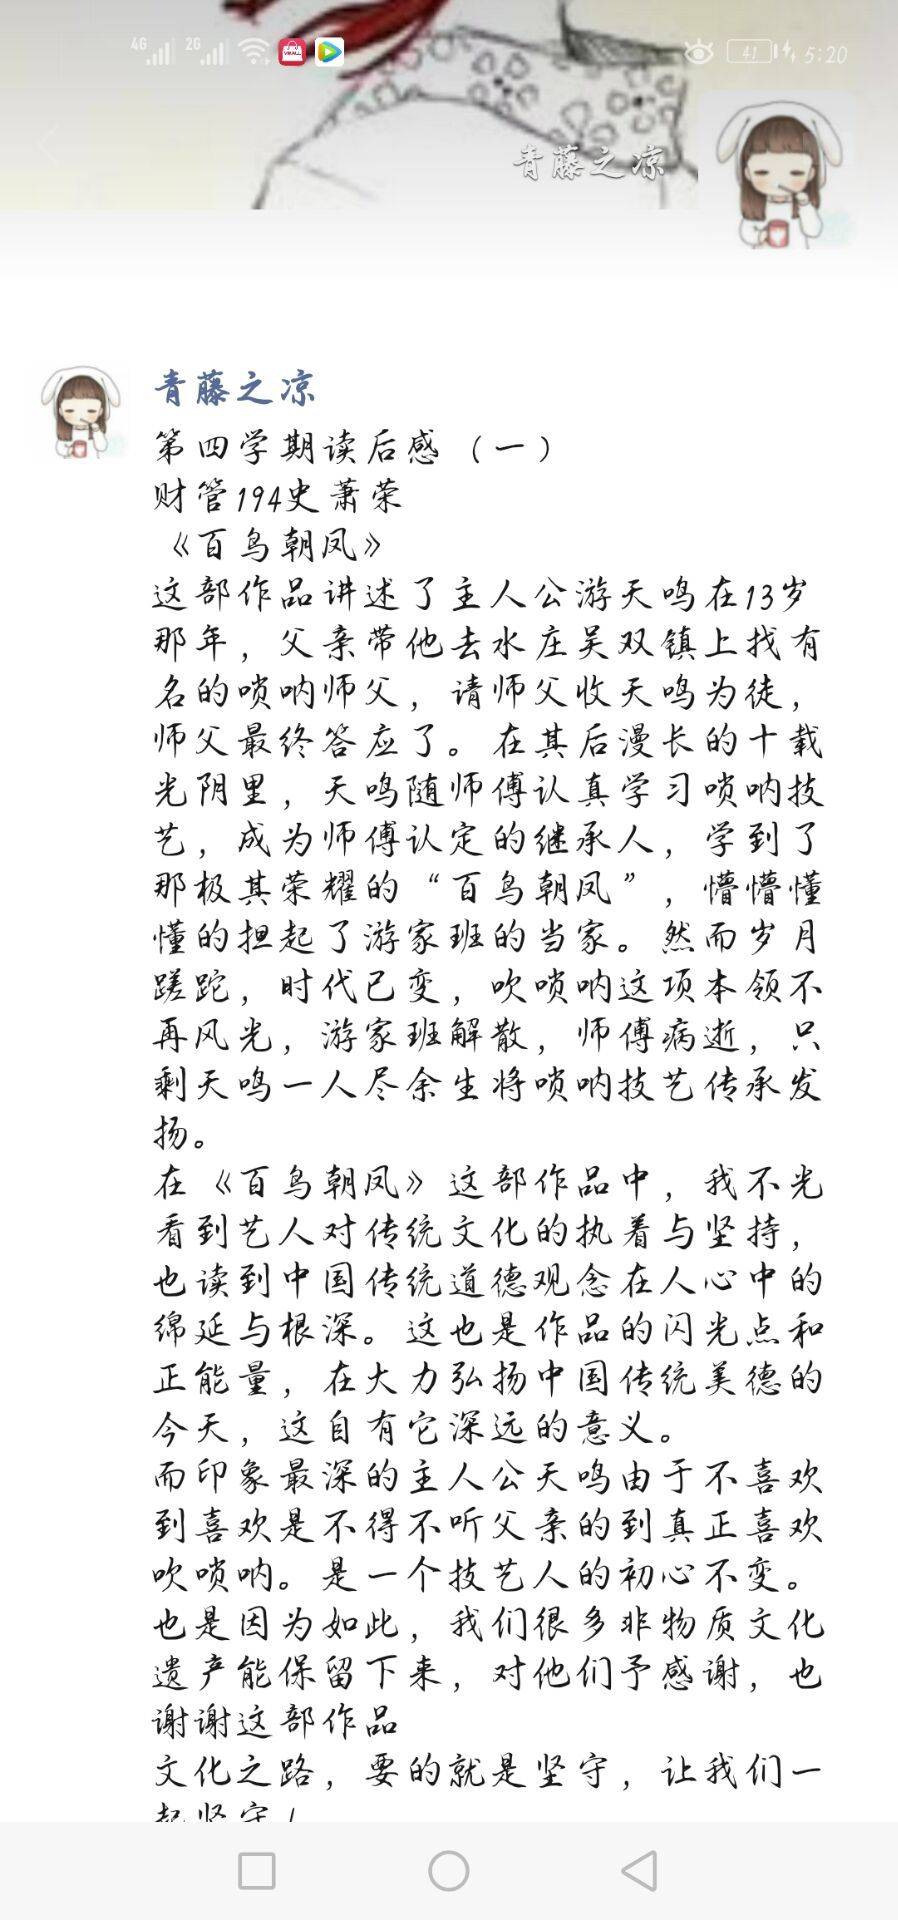 4G 2G VMALL 41 5:20
青藤之凉
青藤之凉
第四学期读后感（一）
财管194史萧荣
《百鸟朝凤》
这部作品讲述了主人公游天鸣在13岁
那年，父亲带他去水庄吴双镇上找有
名的唢呐师父，请师父收天鸣为徒，
师父最终答应了。在其后漫长的十载
光阴里，天鸣随师傅认真学习唢呐技
艺，成为师傅认定的继承人，学到了
那极其荣耀的“百鸟朝凤”，懵懵懂
懂的担起了游家班的当家。然而岁月
蹉跎，时代已变，吹唢呐这项本领不
再风光，游家班解散，师傅病逝，只
剩天鸣一人尽余生将唢呐技艺传承发
扬。
在《百鸟朝凤》这部作品中，我不光
看到艺人对传统文化的执着与坚持，
也读到中国传统道德观念在人心中的
绵延与根深。这也是作品的闪光点和
正能量，在大力弘扬中国传统美德的
今天，这自有它深远的意义。
而印象最深的主人公天鸣由于不喜欢
到喜欢是不得不听父亲的到真正喜欢
吹唢呐。是一个技艺人的初心不变。
也是因为如此，我们很多非物质文化
遗产能保留下来，对他们予感谢，也
谢谢这部作品
文化之路，要的就是坚守，让我们一
起坚守！